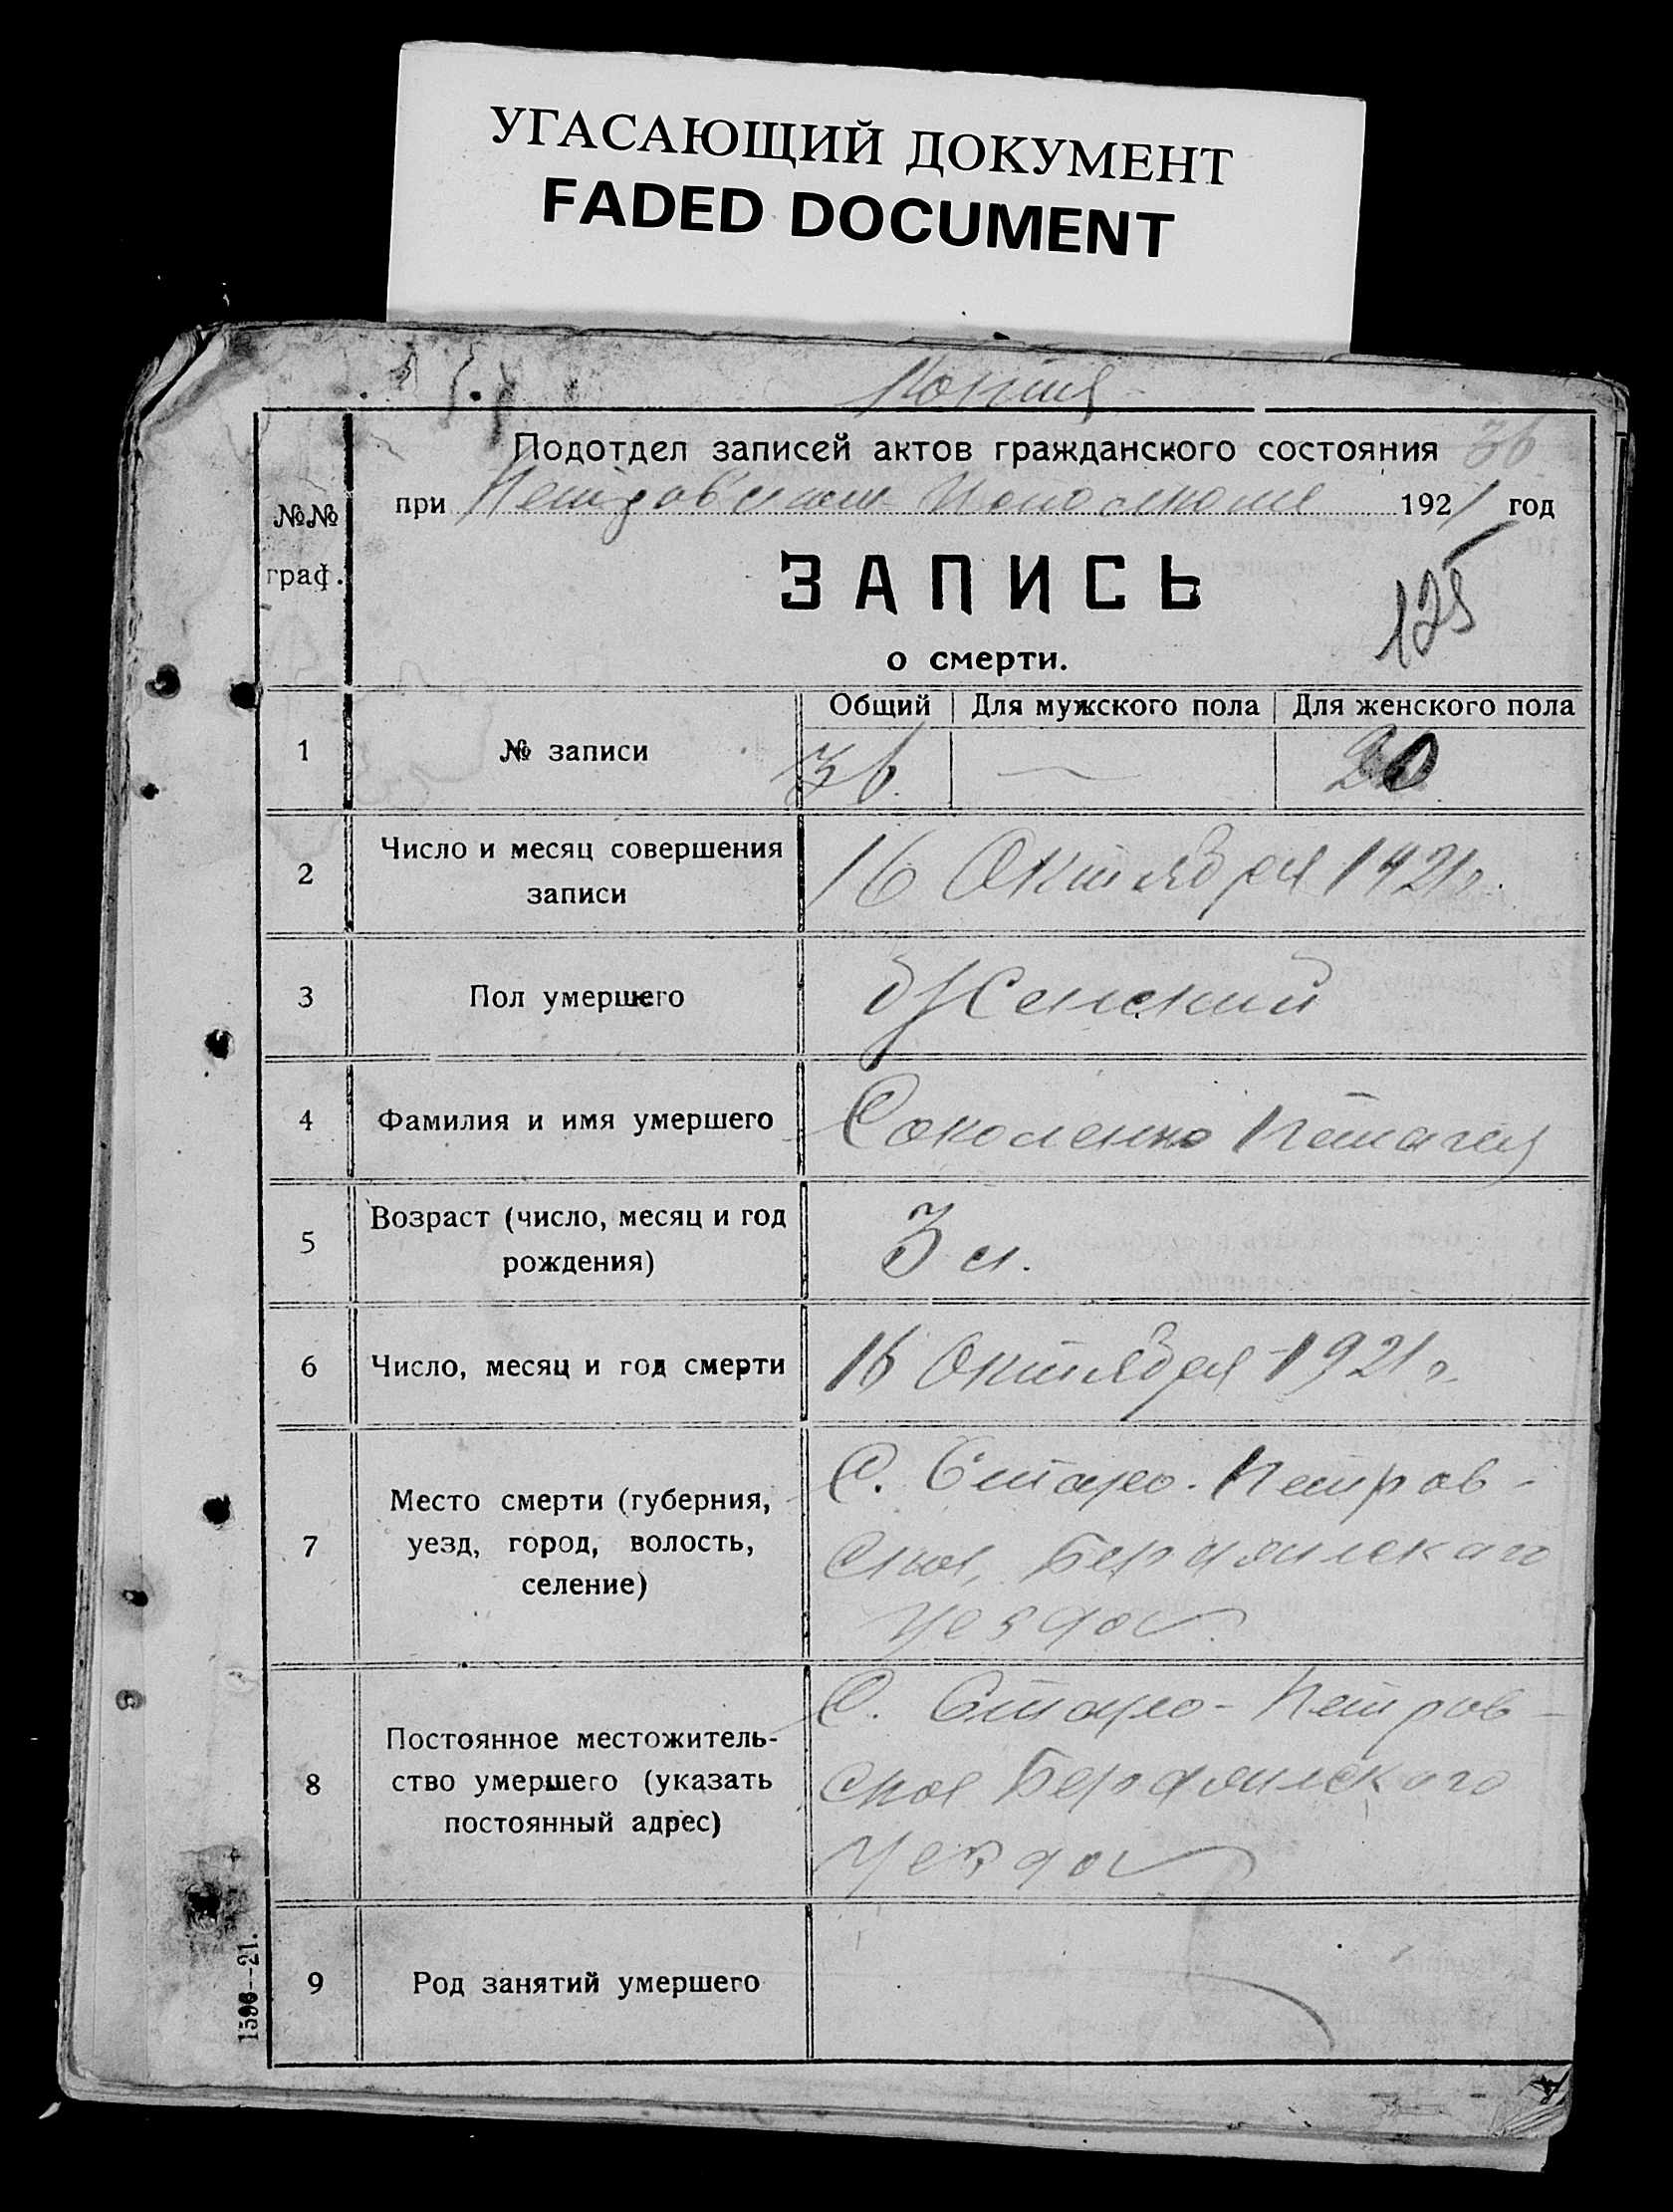 УГАСАЮЩИЙ ДОКУМЕНТ
FADED DOCUMENT
Копия
Подотдел записей актов гражданского состояния 36
при Петровском Исполкоме 1921 год
№№ граф.
ЗАПИСЬ
125
о смерти.
Общий Для мужского пола Для женского пола
1 № записи 36 — 20
2 Число и месяц совершения
записи
16 Октября 1921 г.
3 Пол умершего Женский
4 Фамилия и имя умершего Соколенко
5 Возраст (число, месяц и год
рождения)
3 м.
6 Число, месяц и год смерти 16 Октября 1921 г.
7 Место смерти (губерния,
уезд, город, волость,
селение)
С. Старо-Петров-
ское, Бердянскаго
уезда
8 Постоянное местожитель-
ство умершего (указать
постоянный адрес)
С. Старо-Петров-
ское Бердянского
уезда
9 Род занятий умершего
1596—21.